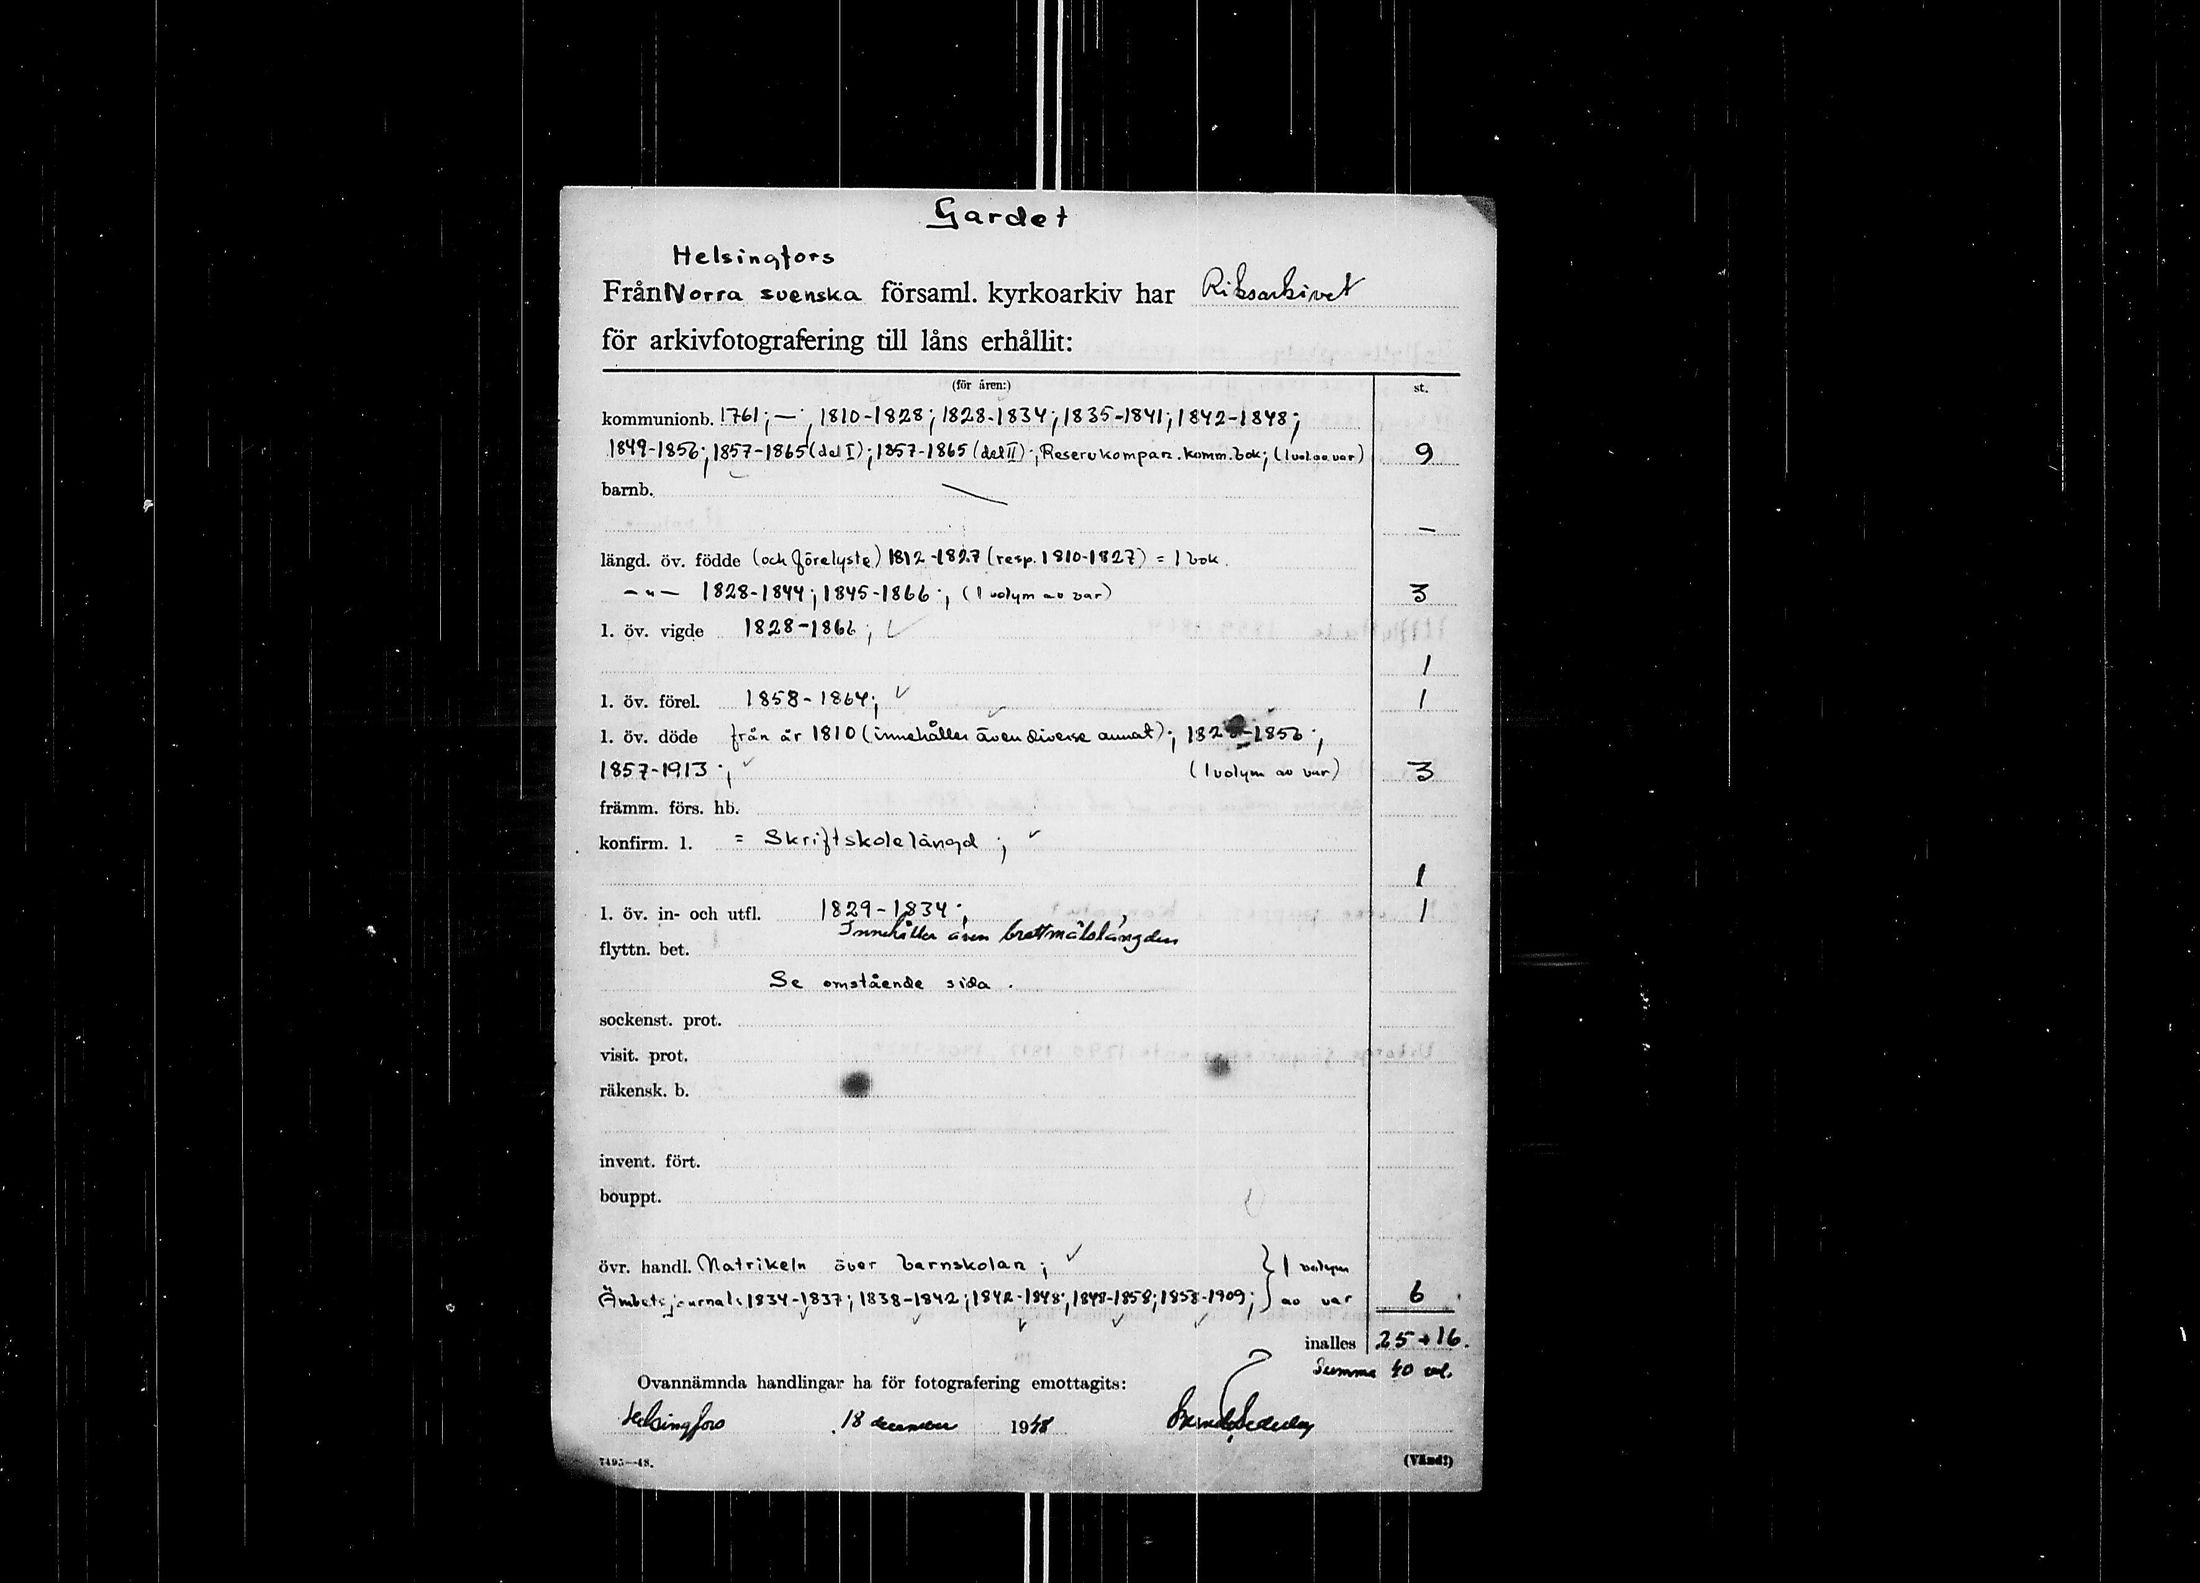 Gardet
Helsingfors
Från Norra svenska församl. kyrkoarkiv har Riksarkivet
för arkivfotografering till låns erhållit:
(för åren:) st.
kommunionb. 1761; —; 1810-1828; 1828-1834; 1835-1841; 1842-1848;
1849-1856; 1857-1865 (del I); 1857-1865 (del II); Reservkompan. komm. bok; (1 vol. av var) 9
barnb. —
—
längd. öv. födde (och förelyste) 1812-1827 (resp. 1810-1827) = 1 bok.
—"— 1828-1844; 1845-1866; (1 volym av var) 3
l. öv. vigde 1828-1866; ✓
1
l. öv. förel. 1858-1864; ✓ 1
l. öv. döde från år 1810 (innehåller även diverse annat); 1828-1856;
1857-1913; ✓ (1 volym av var) 3
främm. förs. hb.
konfirm. l. = Skriftskolelängd; ✓
1
l. öv. in- och utfl. 1829-1834; 1
Innehåller även brottmålslängden
flyttn. bet.
Se omstående sida.
sockenst. prot.
visit. prot.
räkensk. b.
invent. fört.
bouppt.
övr. handl. Matrikeln över barnskolan; ✓ } 1 volym
Ämbetsjournals 1834-1837; 1838-1842; 1842-1848; 1848-1858; 1858-1909; } av var 6
inalles 25+16.
Summa 40 vol.
Ovannämnda handlingar ha för fotografering emottagits:
Helsingfors 18 december 1948
7495—48. (Vänd!)